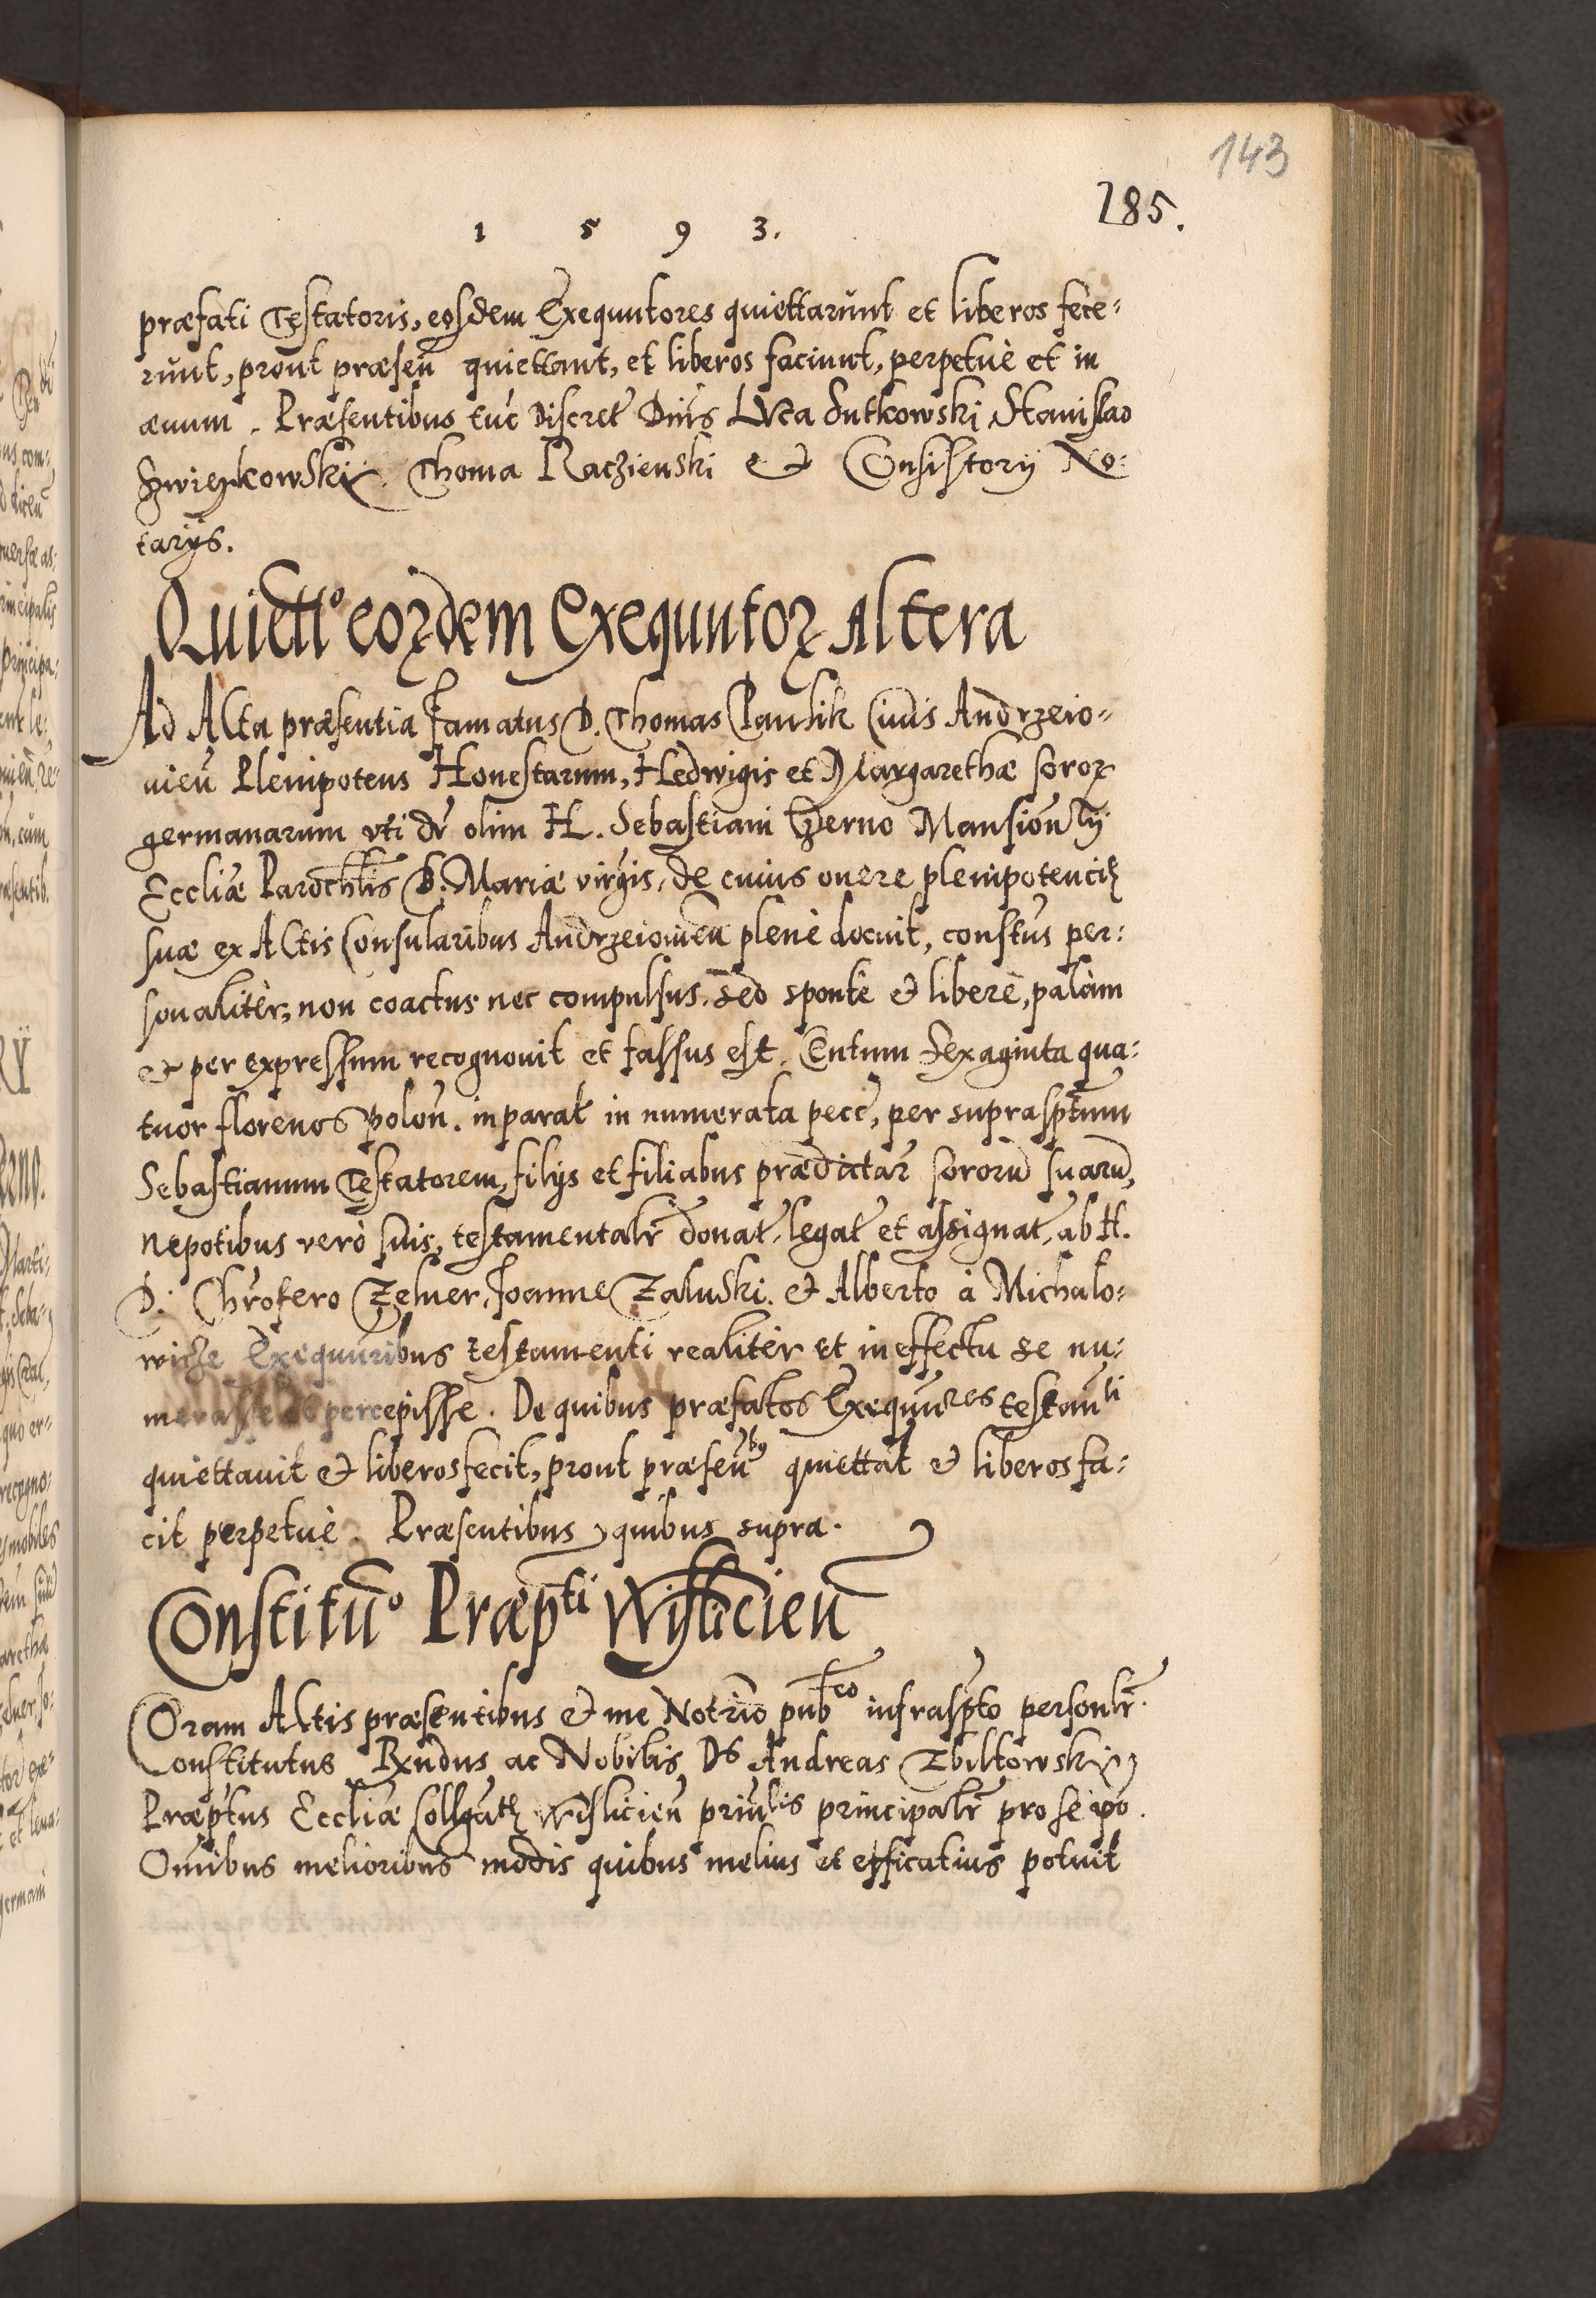 143
285.
1 5 9 3.
præfati Testatoris, eosdem Exequutores quiettarunt et liberos fece=
runt, prout præseñ quiettant, et liberos faciunt, perpetuè et in
æuum. Præsentibus tuc Discret Dñis Luca Sutkowski Stanislao
Swięzkowski Thoma Raczienski et Consistorij No:
tarijs.
Quiettõ eordem Exequutor Altera
Ad Acta præsentia Famatus D. Thomas Pawlik Ciuis Andrzeio=
uieñ Plenipotens Honestarum, Hedwigis et Margarethæ soror
germanarum vti dr olim H. Sebastiani Czerno Mansionrij
Eccliæ Parochlis B. Mariæ virgis, de cuius onere plenipotencię
suæ ex Actis Consularibus Andrzeiouieñ plenè docuit, constus per:
sonalitèr, non coactus nec compulsus, sed sponte et liberè, palàm
et per expressum recognouit et fassus est. Centum Sexaginta qua:
tuor florenos polon. in parat in numerata pecc, per suprasptum
Sebastianum Testatorem, filijs et filiabus prædictar sororu suaru,
nepotibus verò suis, testamentalr donat, legat et assignat, ab H.
D. Chrofero Zelner, Joanne Zaluski. et Alberto à Michalo=
wicze Exequuribus testamenti realitèr et in effectu se nu:
merasse et percepisse. De quibus præfatos Exequures testanti
quiettauit et liberos fecit, prout præseñby quiettat et liberos fa:
cit perpetuè. Præsentibus quibus supra.
Constitũo Præpti Wislicieñ
Coram Actis præsentibus et me Notrio pubco infraspto personlr
Constitutus Rndus ac Nobilis Ds Andreas Zbiltowski
Præptus Eccliæ Collgatę Wislicieñ priuslis principalr pro se ipo.
Omibus melioribus modis quibus melius et efficatius potuit